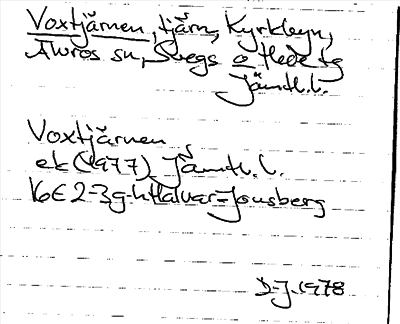 Voxtjärnen, tjärn, Kyrkbyn,
Älvros sn, Svegs o Hede tg
Jämtl. l.
Voxtjärnen
ek (1977) Jämtl. l.
16E 2-3 g-h Halvar-Jonsberg
D-J. 1978